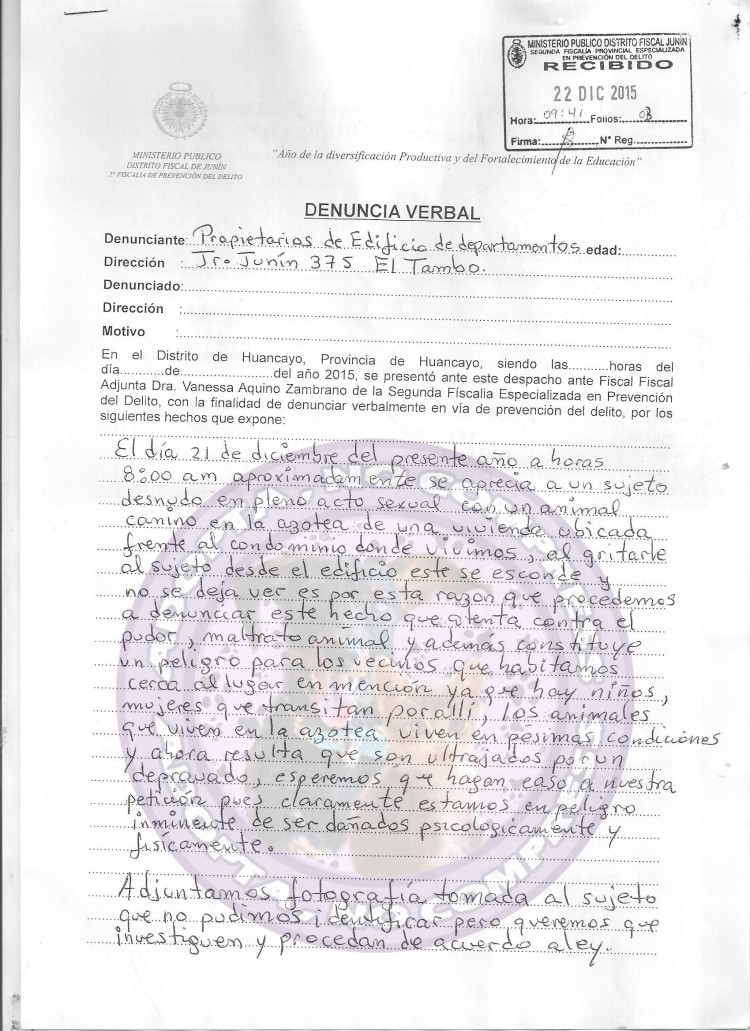 MINISTERIO PUBLICO DISTRITO FISCAL JUNÍN
SEGUNDA FISCALÍA PROVINCIAL ESPECIALIZADA
EN PREVENCIÓN DEL DELITO
RECIBIDO
22 DIC 2015
Hora: 09:41 Folios: 03
Firma: N° Reg.
MINISTERIO PUBLICO
DISTRITO FISCAL DE JUNÍN
FISCALIA DE PREVENCIÓN DEL DELITO
"Año de la diversificación Productiva y del Fortalecimiento de la Educación"
DENUNCIA VERBAL
Denunciante: Propietarios de Edificio de departamentos edad:
Dirección : Jr. Junín 375 El Tambo.
Denunciado:
Dirección :
Motivo :
En el Distrito de Huancayo, Provincia de Huancayo, siendo las...........horas del
día............de......................del año 2015, se presentó ante este despacho ante Fiscal Fiscal
Adjunta Dra. Vanessa Aquino Zambrano de la Segunda Fiscalia Especializada en Prevención
del Delito, con la finalidad de denunciar verbalmente en vía de prevención del delito, por los
siguientes hechos que expone:
El día 21 de diciembre del presente año a horas
8:00 am aproximadamente se aprecia a un sujeto
desnudo en pleno acto sexual con un animal
canino en la azotea de una vivienda ubicada
frente al condominio donde vivimos, al gritarle
al sujeto desde el edificio este se esconde y
no se deja ver es por esta razon que procedemos
a denunciar este hecho que atenta contra el
pudor, maltrato animal y además constituye
un peligro para los vecinos que habitamos
cerca al lugar en mención ya que hay niños,
mujeres que transitan por allí, los animales
que viven en la azotea viven en pésimas condiciones
y ahora resulta que son ultrajados por un
depravado, esperemos que hagan caso a nuestra
petición pues claramente estamos en peligro
inminente de ser dañados psicologicamente y
físicamente.
Adjuntamos fotografía tomada al sujeto
que no pudimos identificar pero queremos que
investiguen y procedan de acuerdo a ley.